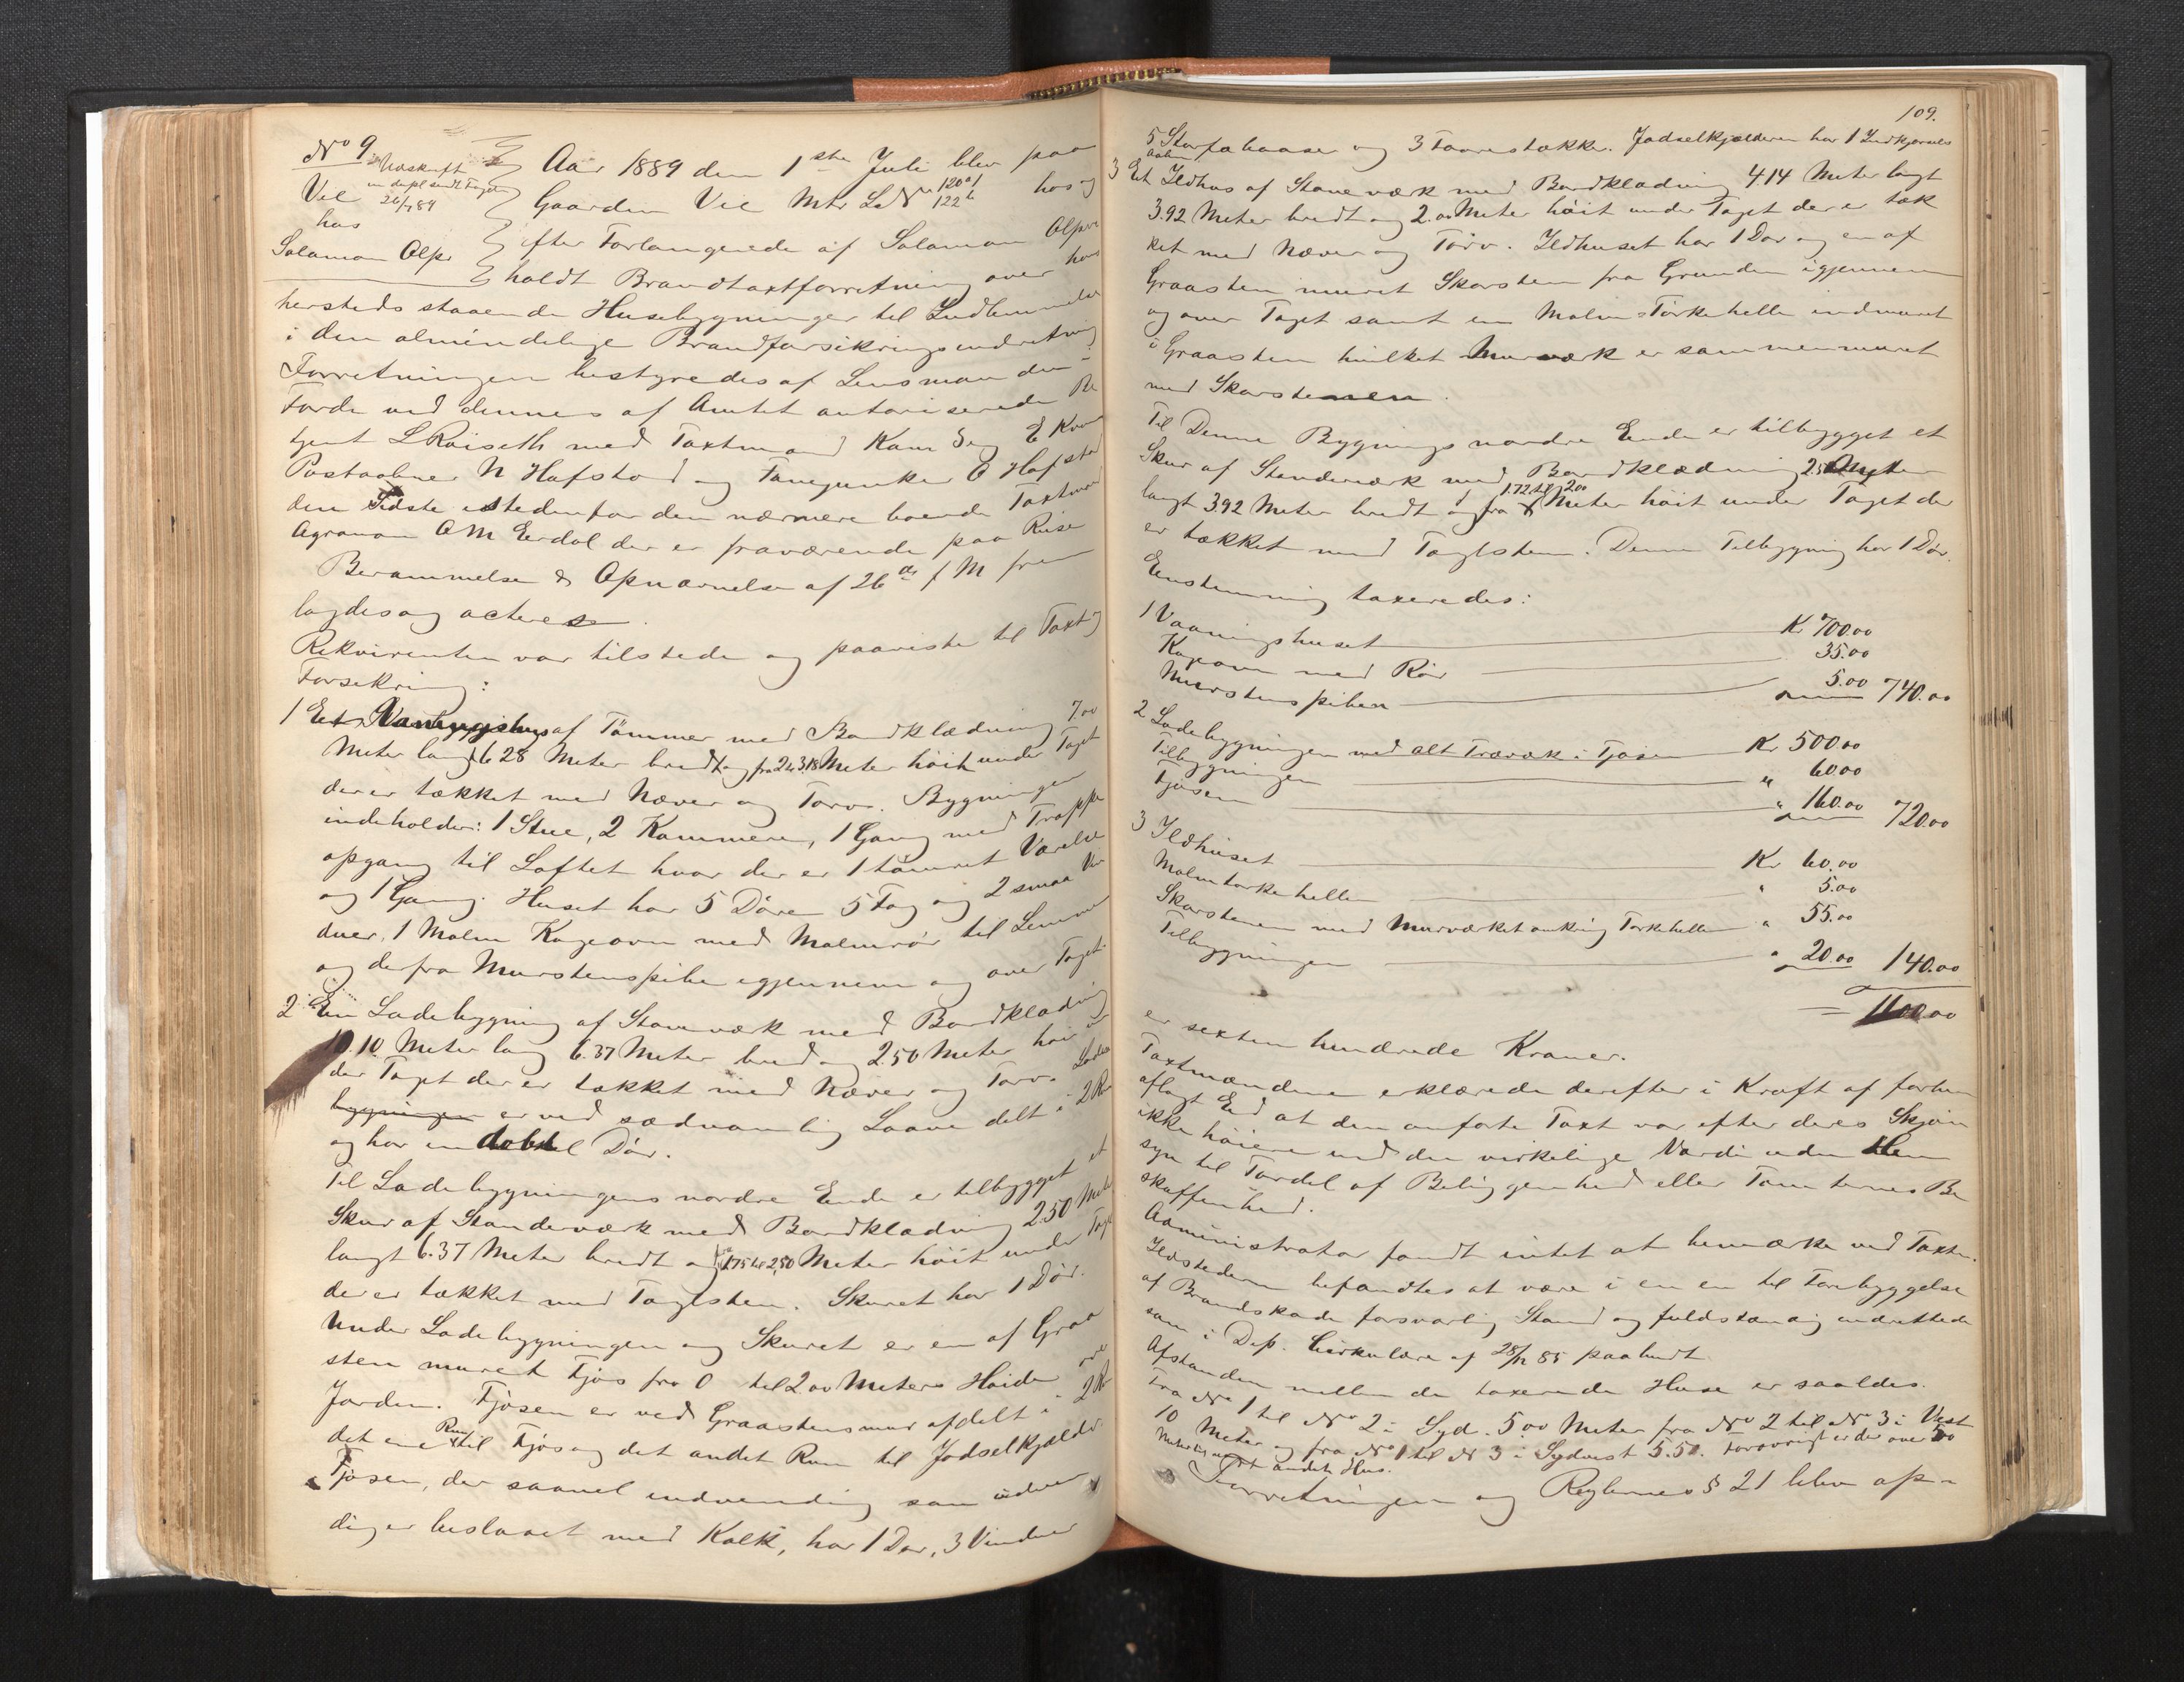 No 9
Udskrift
Vie
26/7 89
hos
Salamon Olss
Aar 1889 den 1ste Juli blev paa
Gaarden Vie Mtr L No 120a 122b hos og
efter Forlangende af Salamon
holdt Brandtaxtforretning over
hersteds staaende Husebygninger til Indlemmelse
i den almindelige Brandforsikringsindretning
Forretningen bestyredes af Lensmanden i
Førde ved dennes af Amtet autoriserede
L Røiseth med Taxtmænd Kam Seg E
Postaabner N Hafstad og Fanejunker O Hafstad
den Sidste istedenfor den nærmere boende Taxtmand
Agronom O M Eerdal der er fraværende paa Reise
Berammelse & Opnævnelse af 26de f M frem
lagdes og acteres
Rekvirenten var tilstede og paaviste til Taxt og
Forsikring:
1 Et Vaaningshus af Tømmer med Bordklædning 7.00
Meter langt 6.28 Meter bredt og fra 2 til 3.18 Meter høit under Taget
der er tækket med Næver og Torv. Bygningen
indeholder: 1 Stue, 2 Kammere, 1 Gang med Trappe
opgang til Loftet hvor der er 1 tømret Værelse
og 1 Gang. Huset har 5 Døre 5 Fag og 2 smaa Vin
duer, 1 Malm Kageovn med Malmrør til Lemmen
og derfra Murstenspibe igjennem og over Taget.
2 En Ladebygning af Stavværk med Bordklædning
10.10 Meter lang 6.37 Meter bred og 2.50 Meter høi un
der Taget der er tækket med Næver og Torv. Lade
bygningen er ved sædvanlig Laave delt i 2 Rum
og har en dobbel Dør.
Til Ladebygningens nordre Ende er tilbygget et
Skur af Standerværk med Bordklædning 2.50 Meter
langt 6.37 Meter bredt og fra 1.75 til 2.50 Meter høit under Taget
der er tækket med Taglsten. Skuret har 1 Dør.
Under Ladebygningen og Skuret er en af Graa
sten muret Fjøs fra 0 til 2.00 Meters Høide over
Jorden. Fjøsen er ved Graastensmur afdelt i 2 Rum
det ene Rum til Fjøs og det andet Rum til Jødselkjælder.
Fjøsen, der saavel indvendig som udven
dig er beslaaet med Kalk, har 1 Dør, 3 Vinduer
109.
5 Storfebaase og 3 Foerstække. Jødselkjælderen har 1 Indkjørsels
3 Et Ildhus af Stavværk med Bordklædning 4.14 Meter langt
3.92 Meter bredt og 2.00 Meter høit under Taget der er tæk
ket med Næver og Torv. Ildhuset har 1 Dør og en af
Graasten muret Skorsten fra Grunden igjennem
og over Taget samt en Malm=Tørkehelle indmuret
i Graasten hvilket Murværk er sammenmuret
med Skorstenen.
Til Denne Bygnings nordre Ende er tilbygget et
Skur af Standerværk med Bordklædning 2.50 Meter
langt 3.92 Meter bredt og fra 1.72 til 2.00 Meter høit under Taget der
er tækket med Taglsten. Denne Tilbygning har 1 Dør.
Eenstemmig taxeredes:
1 Vaaningshuset Kr 700.00
Kageovn med Rør 35.00
Murstenspiben 5.00 740.00
2 Ladebygningen med alt Træværk i Fjøsen Kr 500.00
Tilbygningen " 60.00
Fjøsen " 160.00 720.00
3 Ildhuset Kr 60.00
Malmtørkehellen " 5.00
Skorstenen med Murværket omkring Tørkehellen " 55.00
Tilbygningen " 20.00 140.00
= 1600.00
er sexten hundrede Kroner.
Taxtmændene erklærede derefter i Kraft af forhen
aflagt Eed at den anførte Taxt var efter deres Skjøn
ikke høiere end den virkelige Værdi uden Hen
syn til Fordel af Beliggenhed eller Tomternes Be
skaffenhed.
Administrator fandt intet at bemærke ved Taxten.
Ildstederne befandtes at være i en en til Forebyggelse
af Brandskade forsvarlig Stand og fuldstændig indrettede
som i Dep. Cirkulære af 28/12 85 paabudt.
Afstanden mellem de taxerede Huse er saaledes.
Fra No 1 til No 2 i Syd. 5.00 Meter fra No 2 til No 3 i Vest
10 Meter og fra No 1 til No 3 i Sydvest 5.50. Forøvrigt er der over 50
Meter til andet Hus.
Forretningen og Reglernes § 21 blev op=